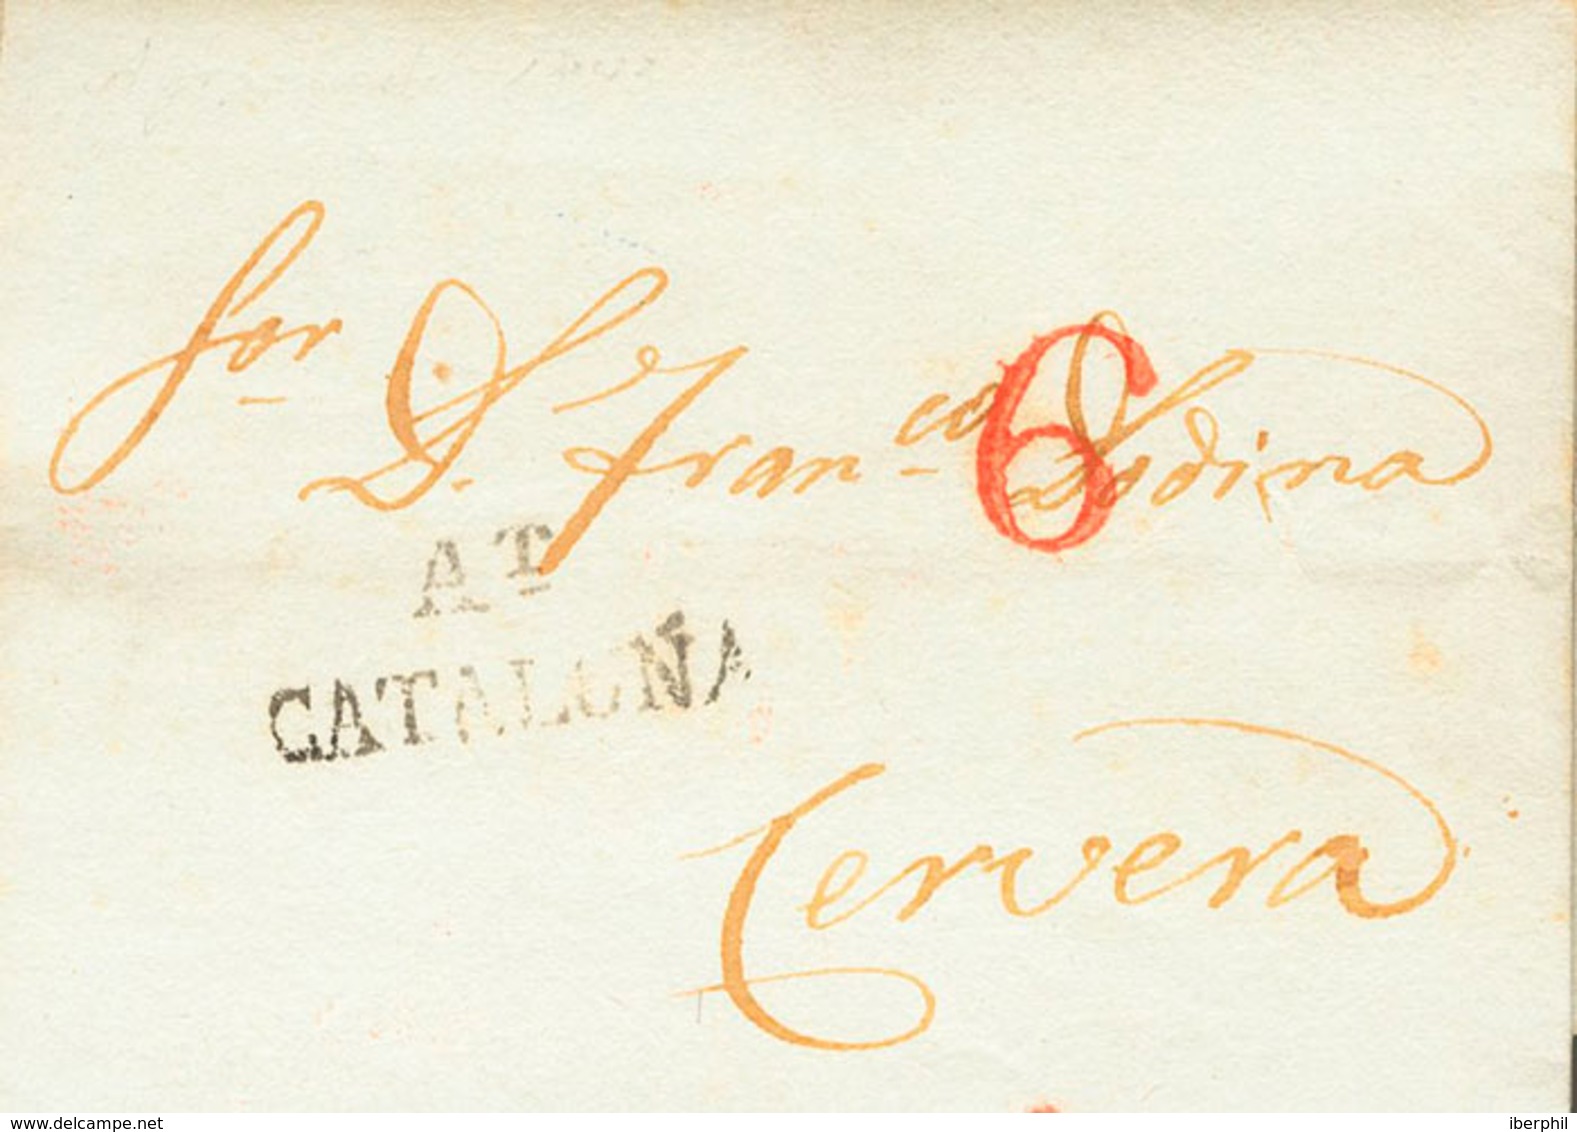 Sor D. Franco Dodina
6
AT
CATALUÑA
Cervera
www.delcampe.net
iberphil